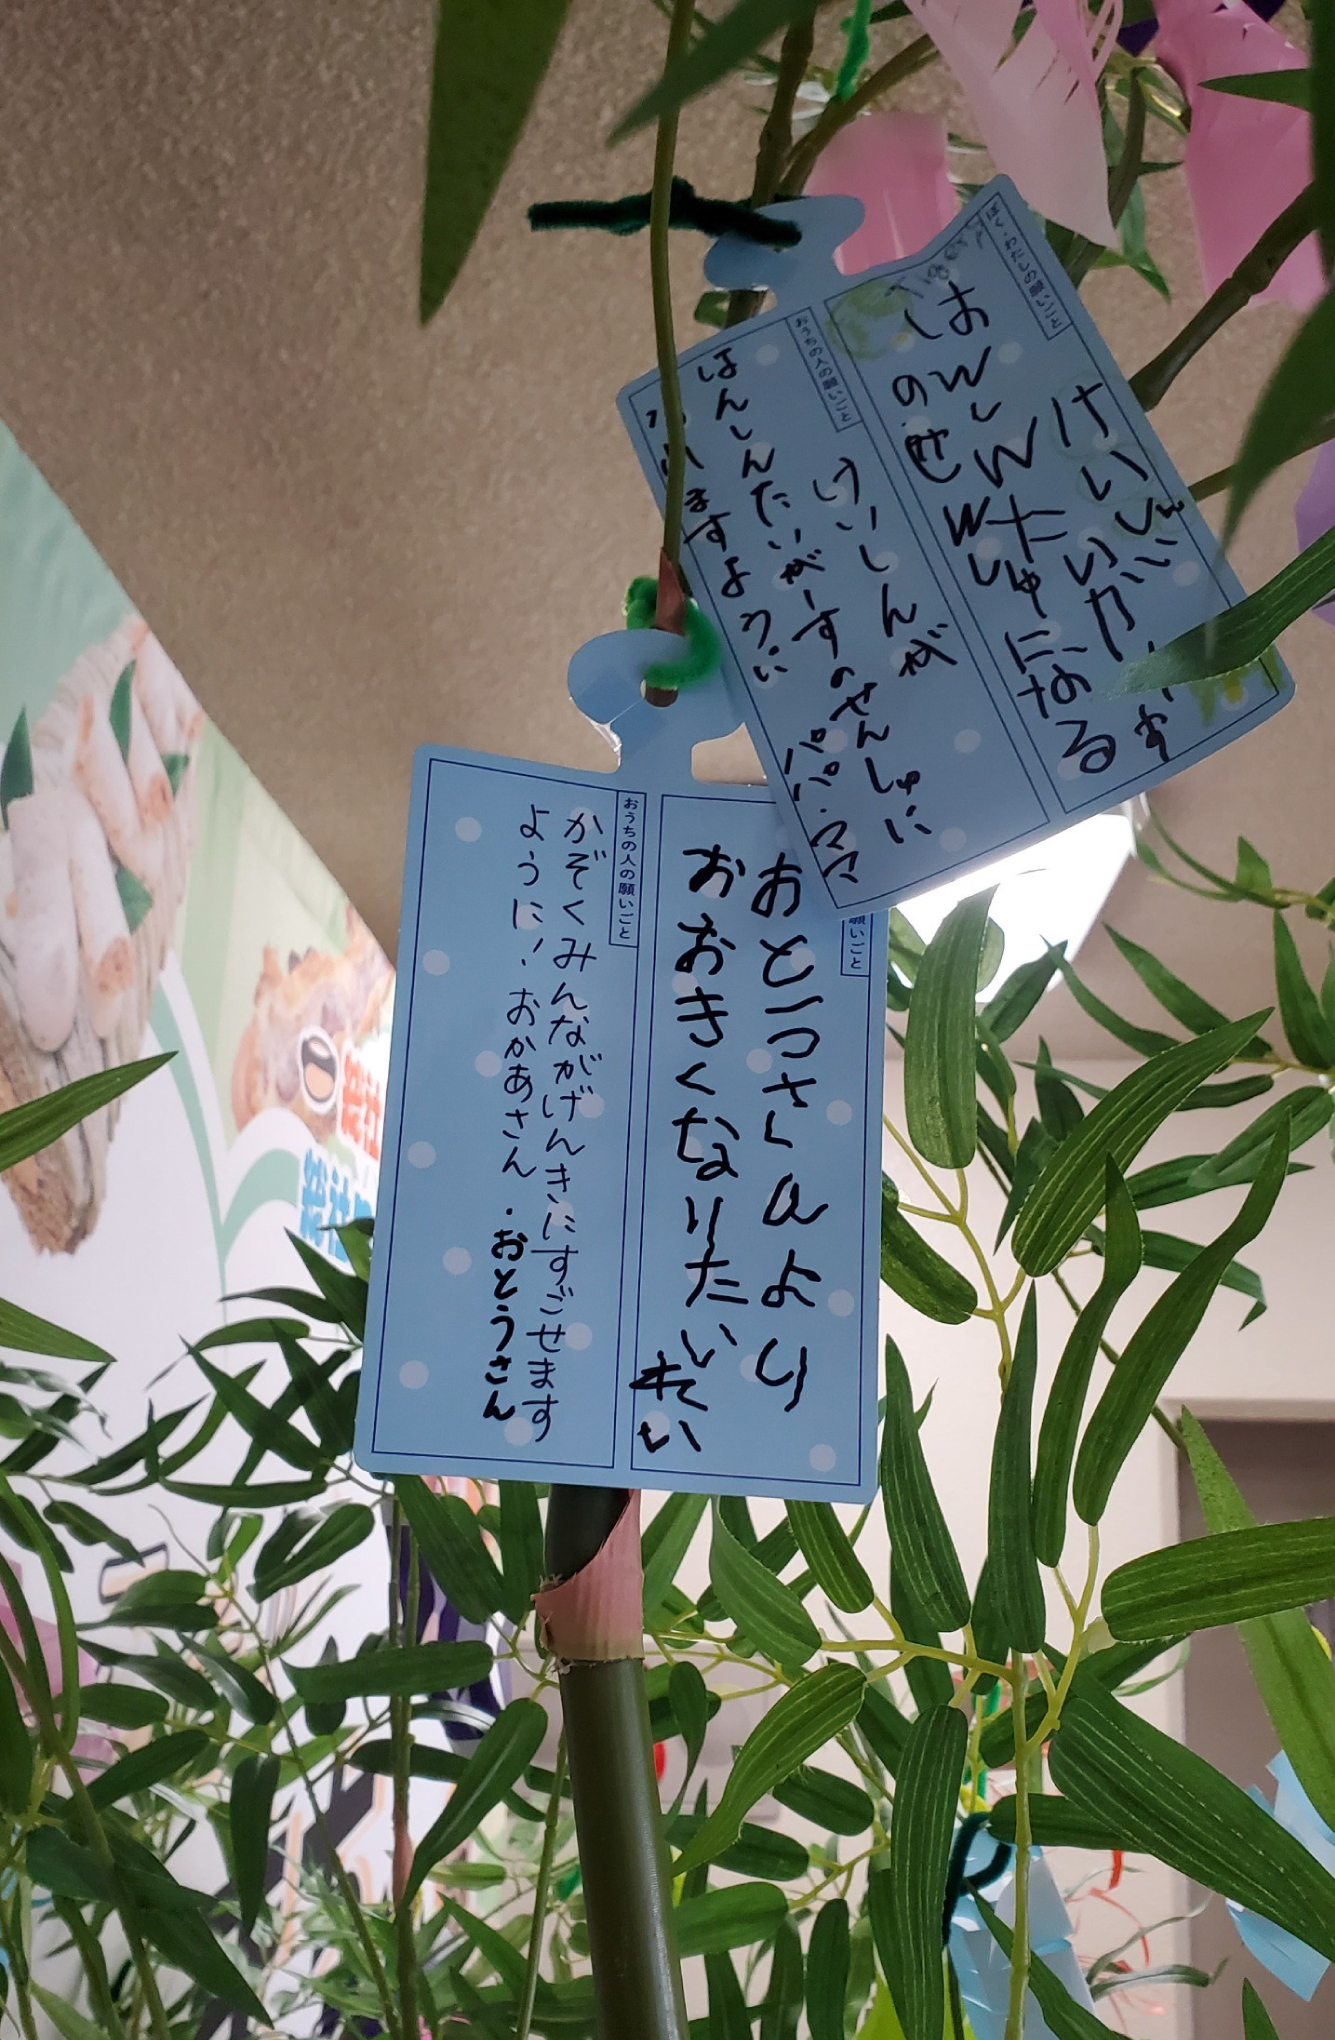 ぼく・わたしの願いごと
けいしん
はんしんたいがーす
のせんしゅになる
おうちの人の願いごと
けいしんが
はんしんたいがーすのせんしゅに
ますように
パパ・ママ
願いごと
おとうさんより
おおきくなりたい
れい
おうちの人の願いごと
かぞくみんながげんきにすごせます
ように！おかあさん・おとうさん
総社
総社